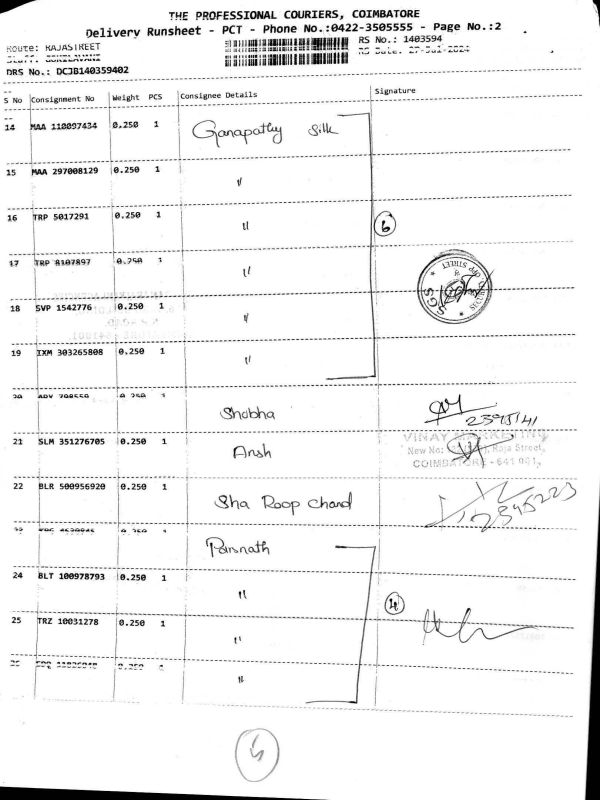 THE PROFESSIONAL COURIERS, COIMBATORE
Delivery Runsheet - PCT - Phone No.:0422-3505555 - Page No.:2
Route: RAJASTREET
RS No.: 1403594
RS Date: 27-Jul-2024
DRS No.: DCJB140359402
S No Consignment No Weight PCS Consignee Details Signature
14 MAA 110097434 0.250 1 Ganapathy Silk
15 MAA 297008129 0.250 1 "
16 TRP 5017291 0.250 1 " 6
17 TRP 8107897 0.250 1 "
SGS
18 SVP 1542776 0.250 1 "
19 IXM 303265808 0.250 1 "
20 0.250 Shobha
21 SLM 351276705 0.250 1 Ansh
VINAY MARKETING
New No: Raja Street,
COIMBATORE - 641 001.
22 BLR 500956920 0.250 1 Sha Roop Chand
23 0.250 1 Parisnath
24 BLT 100978793 0.250 1 "
25 TRZ 10031278 0.250 1 " 4
26 0.250 1 "